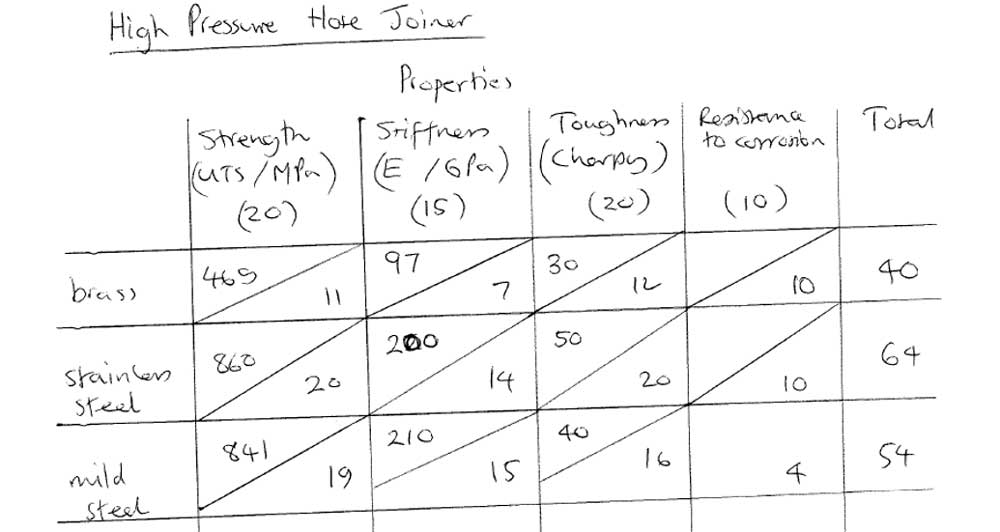 High Pressure Hose Joiner
Properties
Strength (UTS/MPa) (20) Stiffness (E/GPa) (15) Toughness (Charpy) (20) Resistance to corrosion (10) Total
brass 469 11 97 7 30 12 10 40
stainless steel 860 20 200 14 50 20 10 64
mild steel 841 19 210 15 40 16 4 54